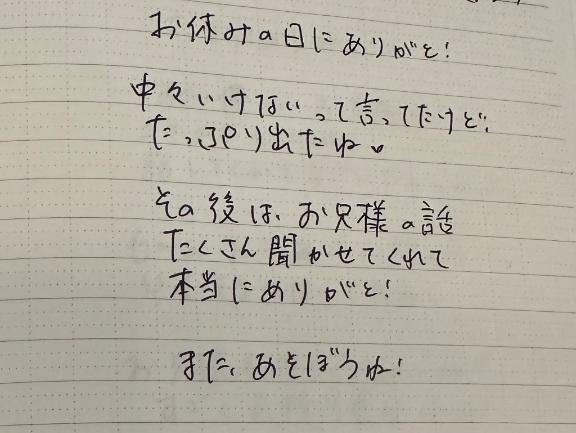 お休みの日にありがと!
中々いけないって言ってたけど、
たっぷり出たね♥
その後は、お兄様の話
たくさん聞かせてくれて
本当にありがと!
また、あそぼうね!